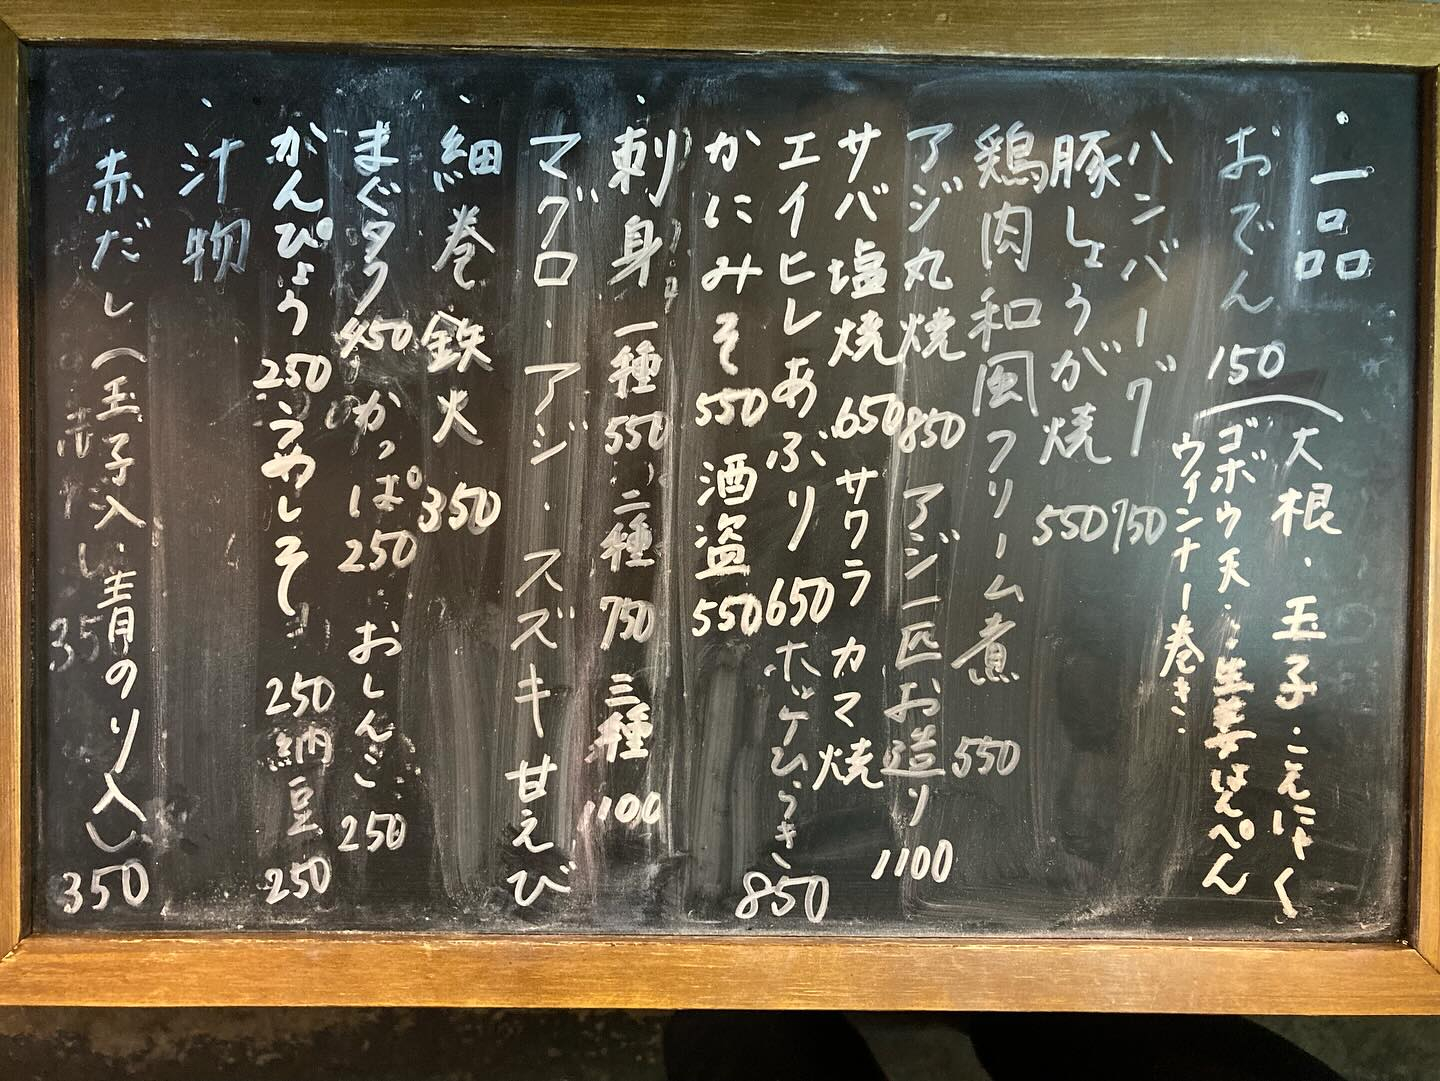 ・一品
おでん 150 (大根・玉子・こんにゃく
ゴボウ天・生姜はんぺん
ウィンナー巻き・
ハンバーグ 750
豚しょうが焼 550
鶏肉和風クリーム煮 550
アジ丸焼 850 アジ一匹お造り 1100
サバ塩焼 650 サワラカマ焼
エイヒレあぶり 650 ホッケひらき 850
かにみそ 550 酒盗 550
・刺身 一種 550 二種 750 三種 1100
マグロ・アジ・スズキ 甘えび
・細巻 鉄火 350
まぐタク 450 かっぱ 250 おしんこ 250
かんぴょう 250 うめしそ 250 納豆 250
・汁物
赤だし(玉子入り、青のり入り) 350